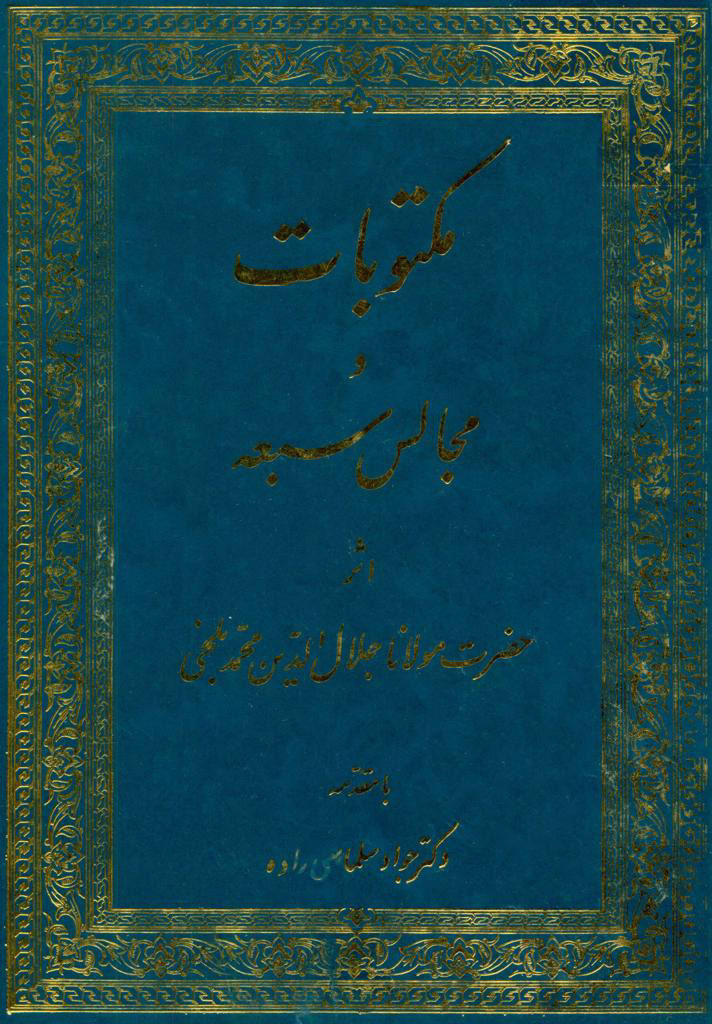 مکتوبات
و
مجالس سبعه
اثر
حضرت مولانا جلال الدین محمد بلخی
با مقدمه
دکتر جواد سلماسی زاده